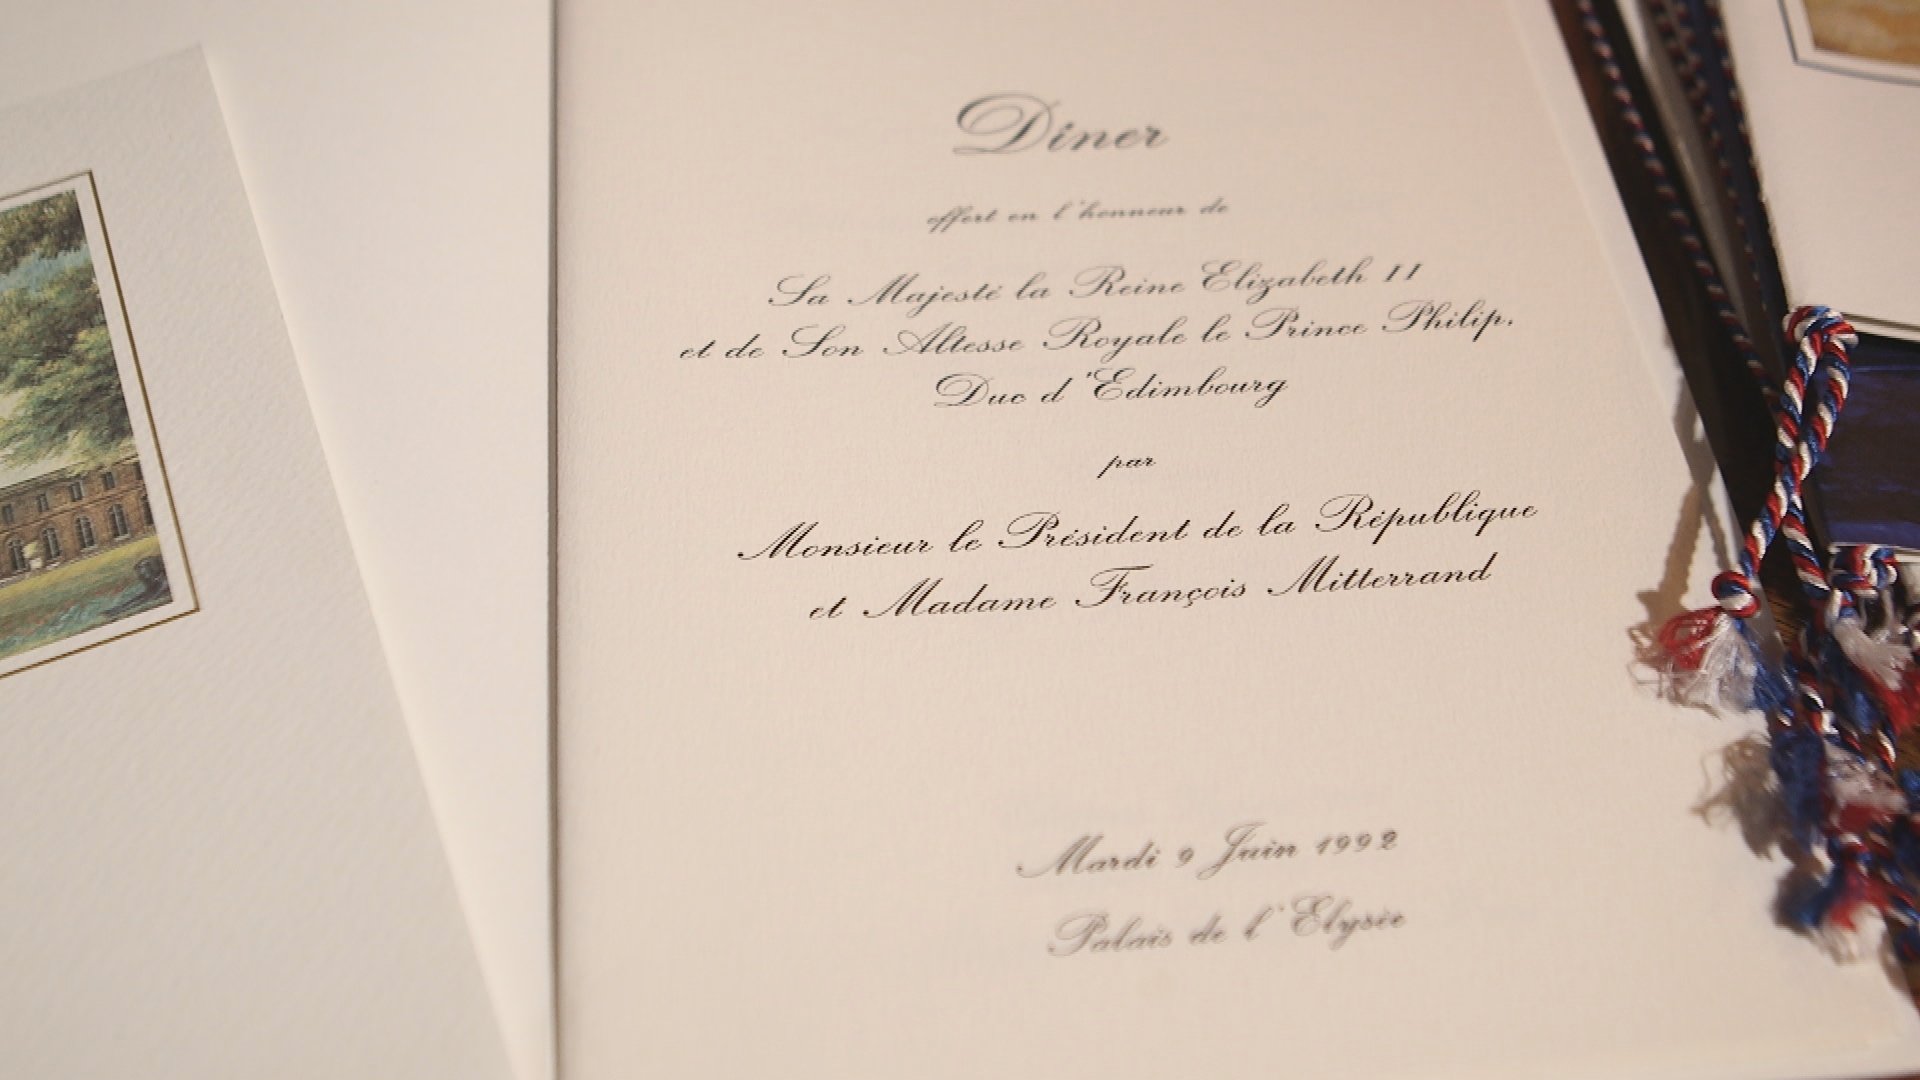 Dîner
offert en l'honneur de
Sa Majesté la Reine Elizabeth II
et de Son Altesse Royale le Prince Philip,
Duc d'Edimbourg
par
Monsieur le Président de la République
et Madame François Mitterrand
Mardi 9 Juin 1992
Palais de l'Elysée